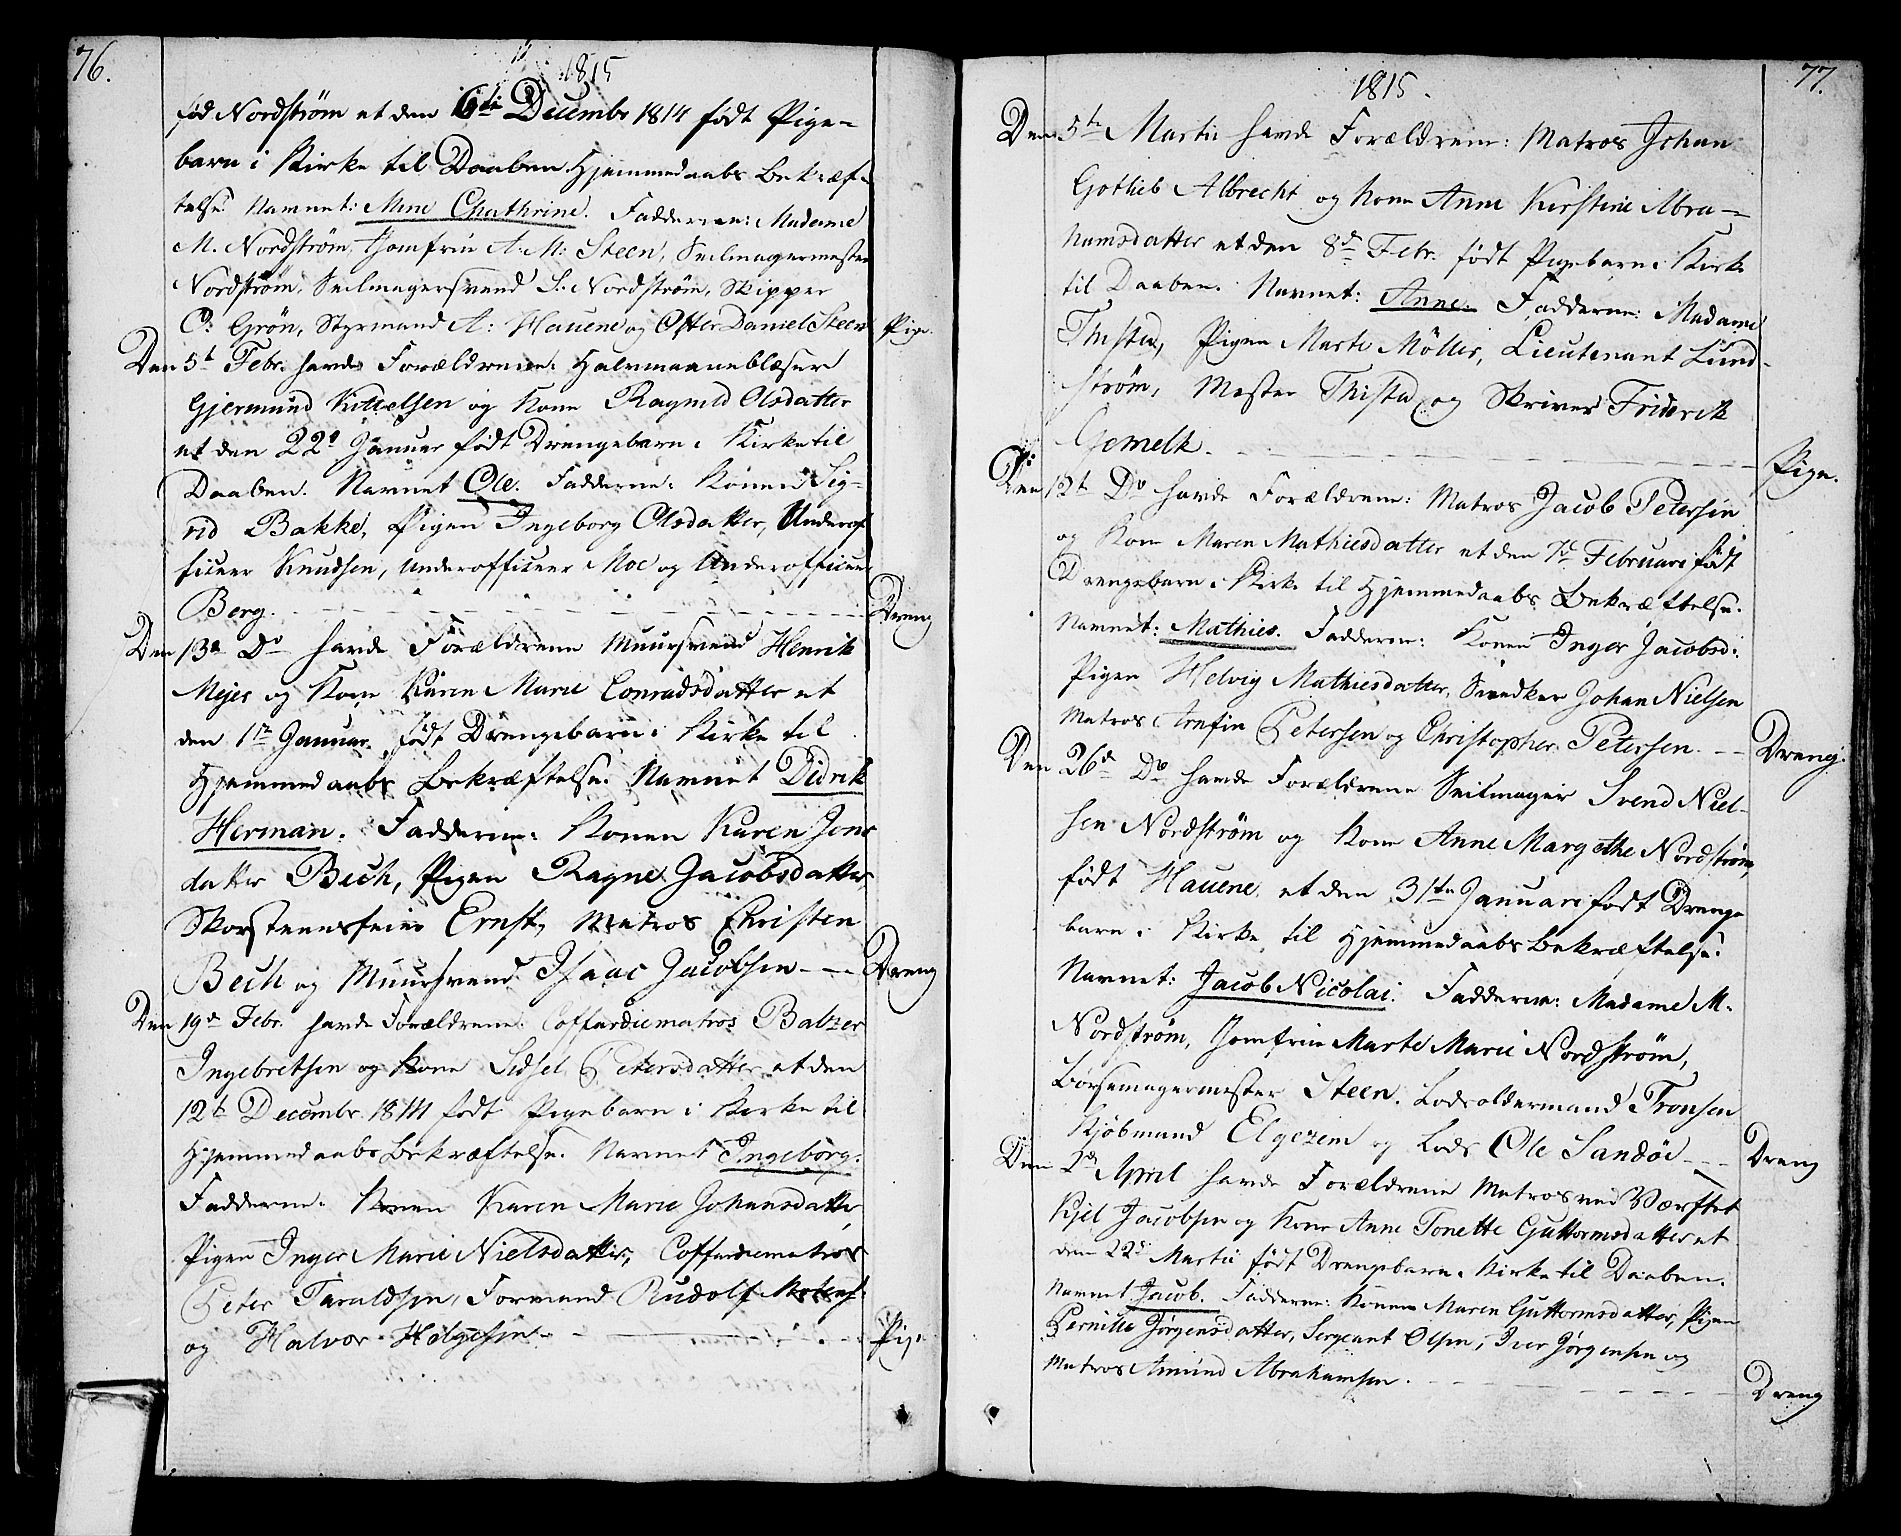 76.
1815
fød Nordstrøm et den 6te Decembr 1814 født Pige-
barn i Kirke til Daabens Hjemmedaabs Bekræf-
telse. Navnet: Mine Chathrine. Fadderne: Madame
M. Nordstrøm, Jomfrue A: M: Steen, Seilmagermester
Nordstrøm, Seilmagersvend S. Nordstrøm, Skipper
O: Grøn, Styrmand A: Hauene og Daniel Steen Pige
Den 5t Febr. havde Forældrene: Halvmaaneblæser
Gjermund Kittelsen og Kone Ragnild Olsdatter
et den 22d Januar født Drengebarn i Kirke til
Daaben. Navnet Ole. Fadderne: Konen Sig-
rid Bakke, Pigen Ingeborg Olsdatter, Underof
ficeer Knudsen, Underofficeer Moe og Underofficeer
Berg. Dreng
Den 13d Do havde Forældrene Muursvend Henrik
Mejer og Kone Karen Marie Conradsdatter et
den 1te Januar født Drengebarn i Kirke til
Hjemmedaabs Bekræftelse. Navnet Didrik
Herman. Fadderne: Konen Karen Jens
datter Bech, Pigen Ragne Jacobsdatter
Skorsteensfeier Ernst, Matros Christen
Bech og Muursvend Isaac Jacobsen Dreng
Den 19de Febr. havde Forældrene: Coffardiematros Balzer
Ingebretsen og Kone Sidsel Petersdatter et den
12t Decembr 1814 født Pigebarn i Kirke til
Hjemmedaabs Bekræftelse. Navnet Ingeborg.
Fadderne: Konen Karen Marie Johansdatter,
Pigen Inger Marie Nielsdatter, Coffardiematros
Peter Taraldsen, Formand Rudolf
og Halvor Helgesen Pige
77.
1815.
Den 5te Martii havde Forældrene: Matros Johan
Gotlieb Albrecht og Kone Anne Kirstine Abra-
hamsdatter et den 8d Febr. født Pigebarn i Kirke
til Daaben. Navnet: Anne. Fadderne: Madame
Thisted, Pigen Marte Möller, Lieutenant Lund-
strøm, Mester Thisted og Skriver Friderik
Gemelk. Pige.
Den 12t Do havde Forældrene: Matros Jacob Petersen
og Kone Maren Mathiesdatter et den 7d Februari født
Drengebarn i Kirke til Hjemmedaabs Bekræftelse.
Navnet: Mathies. Fadderne: Konen Inger Jacobsd:
Pigen Helvig Mathiesdatter, Snedker Johan Nielsen
Matros Arnfin Petersen og Christopher Petersen. Dreng.
Den 26d Do havde Forældrene Seilmager Svend Niel-
sen Nordstrøm og Kone Anne Margethe Nordstrøm,
født Hauene et den 31te Januari født Drenge
barn i Kirke til Hjemmedaabs Bekræftelse.
Navnet: Jacob Nicolai. Fadderne: Madame M.
Nordstrøm, Jomfrue Marte Marie Nordstrøm,
Børsemagermester Steen, Lodsoldermand Tronsen
Kjøbmand Elgezem og Lods Ole Sandøe Dreng
Den 2d April havde Forældrene Matros ved Værftet
Kjel Jacobsen og Kone Anne Tonette Guttormsdatter et
den 22d Martii født Drengebarn i Kirke til Daaben.
Navnet Jacob. Fadderne: Konen Maren Guttormsdatter, Pigen
Pernille Jørgensdatter, Sergeant Olsen, Iver Jørgensen og
Matros Amund Abrahamsen. Dreng